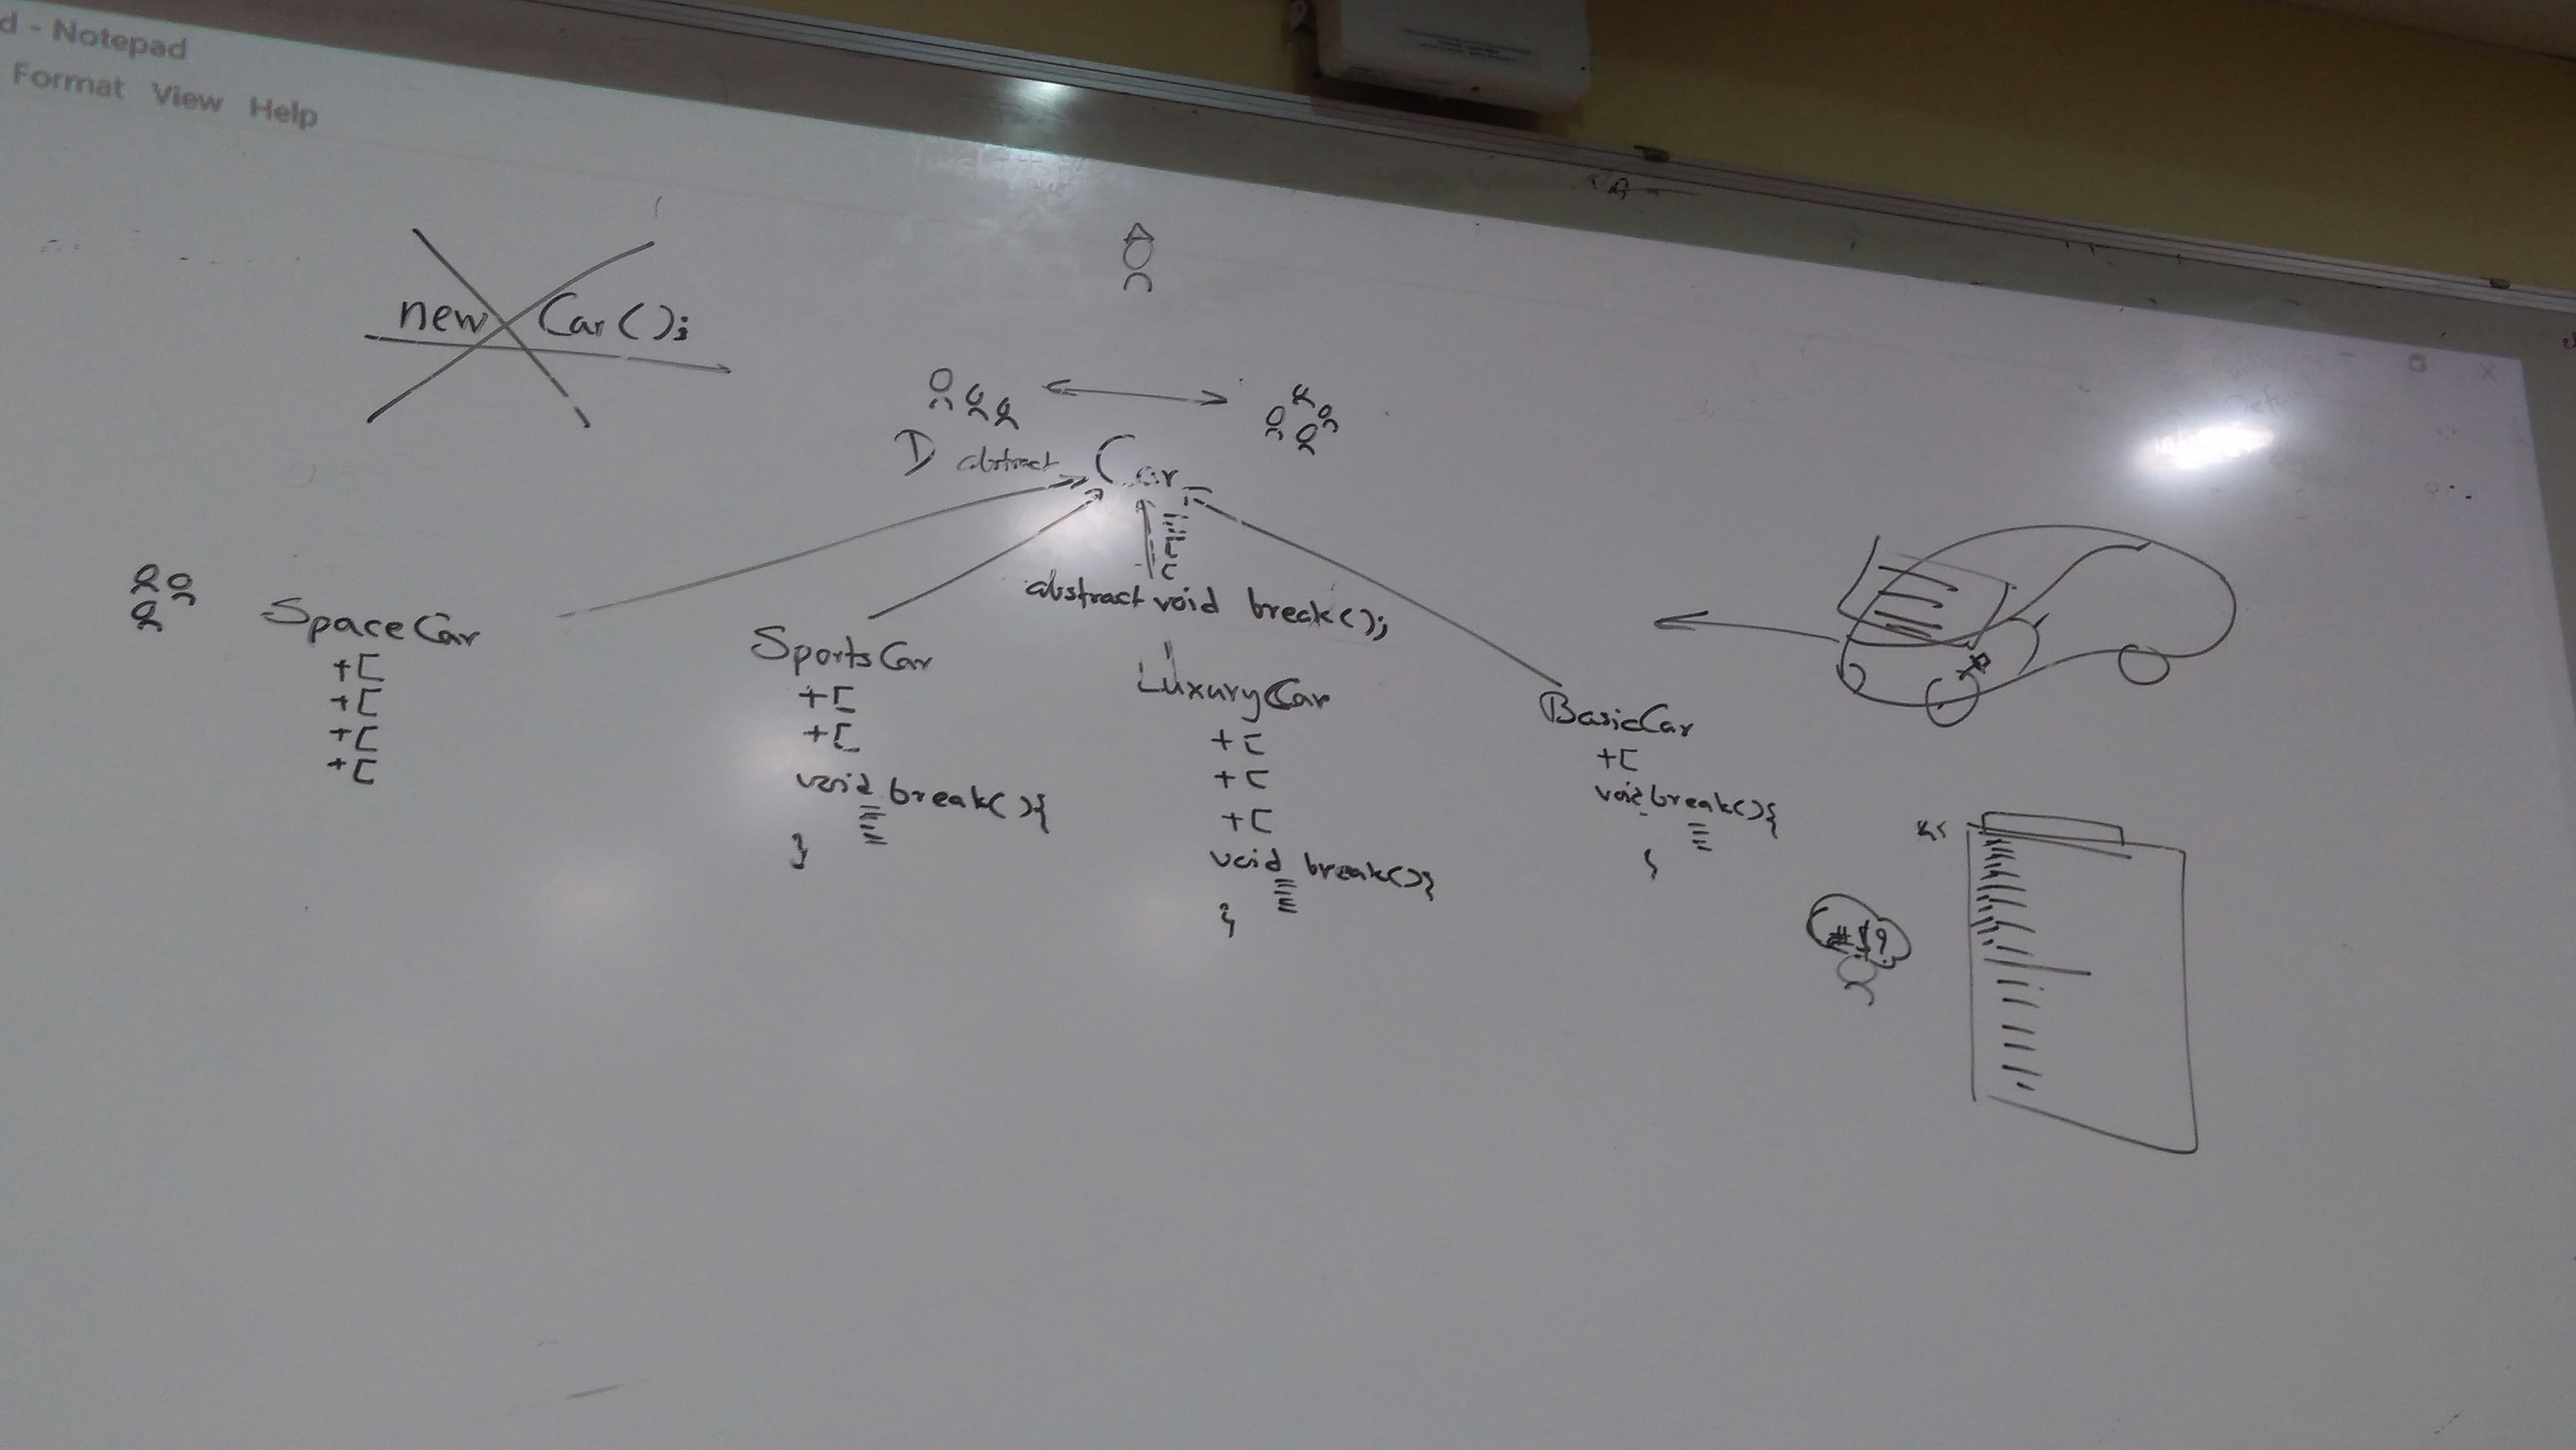 d - Notepad
Format View Help
new Car();
abstract Car
abstract void break();
SpaceCar
+[
+[
+[
+[
SportsCar
+[
+[
void break(){
}
LuxuryCar
+[
+[
+[
void break(){
}
BasicCar
+[
void break(){
}